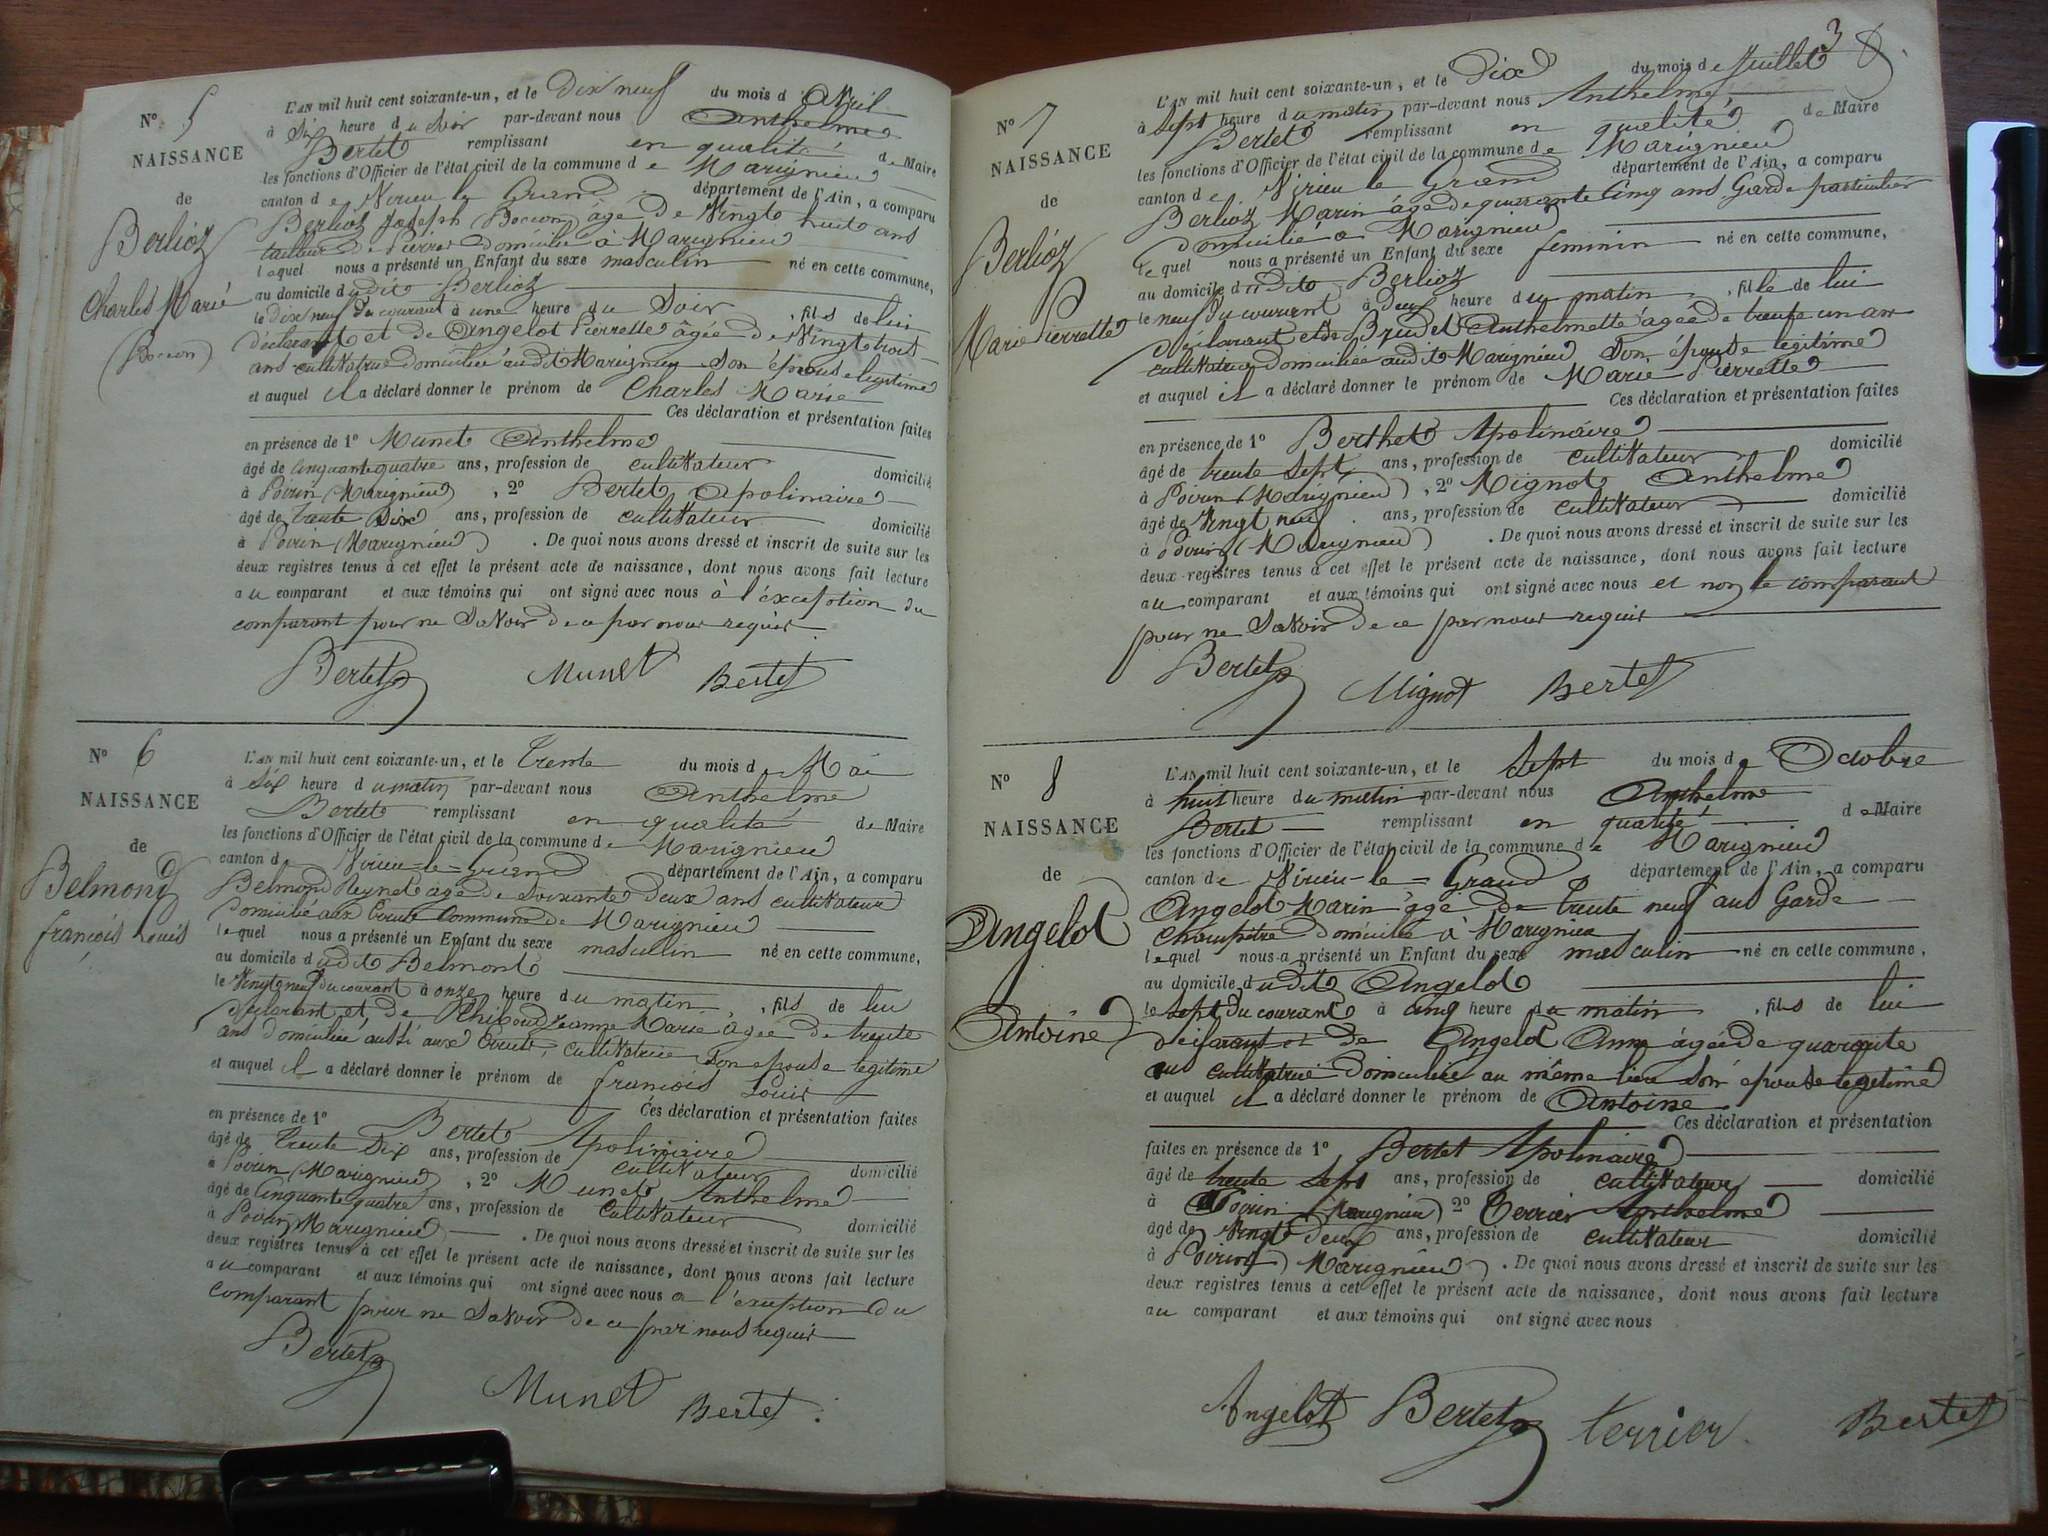 N° 5
NAISSANCE
de
Berlioz
Charles Marie
(Bocion)
L'AN mil huit cent soixante-un, et le Dix neuf du mois d'Avril
à Six heure du Soir par-devant nous Anthelme
Bertet remplissant en qualité de Maire
les fonctions d'Officier de l'état civil de la commune de Marignieu
canton de Virieu le Grand département de l'Ain, a comparu
Berlioz Joseph (Bocion) âgé de Vingt huit ans
tailleur de Pierres domicilié à Marignieu
lequel nous a présenté un Enfant du sexe masculin né en cette commune,
au domicile dudit Berlioz
le dix neuf du courant à une heure du Soir, fils de lui
déclarant et de Angelot Pierrette âgée de Vingt trois
ans cultivatrice domiciliée audit Marignieu Son épouse légitime
et auquel il a déclaré donner le prénom de Charles Marie
Ces déclaration et présentation faites
en présence de 1° Munet Anthelme
âgé de cinquante quatre ans, profession de cultivateur domicilié
à Poirin (Marignieu), 2° Bertet Apolinaire
âgé de trente Six ans, profession de cultivateur domicilié
à Poirin (Marignieu). De quoi nous avons dressé et inscrit de suite sur les
deux registres tenus à cet effet le présent acte de naissance, dont nous avons fait lecture
au comparant et aux témoins qui ont signé avec nous à l'exception du
comparant pour ne Savoir de ce par nous requis
Bertet Munet Bertet
N° 6
NAISSANCE
de
Belmond
françois Louis
L'AN mil huit cent soixante-un, et le trente du mois de Mai
à Six heure du matin par-devant nous Anthelme
Bertet remplissant en qualité de Maire
les fonctions d'Officier de l'état civil de la commune de Marignieu
canton de Virieu-le-Grand département de l'Ain, a comparu
Belmond Reynet âgé de Soixante Deux ans cultivateur
Domicilié aux commune de Marignieu
lequel nous a présenté un Enfant du sexe masculin né en cette commune,
au domicile dudit Belmont
le Vingt neuf du courant à onze heure du matin, fils de lui
déclarant et de Jeanne Marie âgée de trente
ans domiciliée aussi aux cultivatrice Son epouse legitime
et auquel il a déclaré donner le prénom de françois Louis
Ces déclaration et présentation faites
en présence de 1° Bertet Apolinaire
âgé de trente Six ans, profession de cultivateur domicilié
à Poirin (Marignieu), 2° Munet Anthelme
âgé de Cinquante quatre ans, profession de Cultivateur domicilié
à Poirin (Marignieu). De quoi nous avons dressé et inscrit de suite sur les
deux registres tenus à cet effet le présent acte de naissance, dont nous avons fait lecture
au comparant et aux témoins qui ont signé avec nous a l'exception du
comparant pour ne Savoir de ce par nous requis
Bertet Munet Bertet
3
N° 7
NAISSANCE
de
Berlioz
Marie Pierrette
L'AN mil huit cent soixante-un, et le Dix du mois de Juillet
à Sept heure du matin par-devant nous Anthelme
Bertet remplissant en qualité de Maire
les fonctions d'Officier de l'état civil de la commune de Marignieu
canton de Virieu le Grand département de l'Ain, a comparu
Berlioz Marin âgé de quarante Cinq ans Garde particulier
Domicilié a Marignieu
lequel nous a présenté un Enfant du sexe feminin né en cette commune,
au domicile dudit Berlioz
le neuf du courant à Deux heure du matin, fille de lui
déclarant et de Brudet Anthelmette âgée de trente un an
cultivatrice domiciliée audit Marignieu Son épouse legitime
et auquel il a déclaré donner le prénom de Marie Pierrette
Ces déclaration et présentation faites
en présence de 1° Berthet Apolinaire
âgé de trente Sept ans, profession de cultivateur domicilié
à Poirin (Marignieu), 2° Mignot Anthelme
âgé de Vingt neuf ans, profession de cultivateur domicilié
à Poirin (Marignieu). De quoi nous avons dressé et inscrit de suite sur les
deux registres tenus à cet effet le présent acte de naissance, dont nous avons fait lecture
au comparant et aux témoins qui ont signé avec nous et non le comparant
pour ne Savoir de ce par nous requis
Bertet Mignot Bertet
N° 8
NAISSANCE
de
Angelot
Antoine
L'AN mil huit cent soixante-un, et le Sept du mois de Octobre
à huit heure du matin par-devant nous Anthelme
Bertet remplissant en qualité de Maire
les fonctions d'Officier de l'état civil de la commune de Marignieu
canton de Virieu-le-Grand département de l'Ain, a comparu
Angelot Marin âgé de trente neuf ans Garde
Champêtre domicilié à Marignieu
lequel nous a présenté un Enfant du sexe masculin né en cette commune,
au domicile dudit Angelot
le Sept du courant à cinq heure du matin, fils de lui
déclarant et de Angelot Anne âgée de quarante
ans cultivatrice Domiciliée au même lieu Son epouse legitime
et auquel il a déclaré donner le prénom de Antoine
Ces déclaration et présentation
faites en présence de 1° Bertet Apolinaire
âgé de trente Sept ans, profession de cultivateur domicilié
à Poirin (Marignieu) 2° Terrier Anthelme
âgé de Vingt Deux ans, profession de cultivateur domicilié
à Poirin (Marignieu). De quoi nous avons dressé et inscrit de suite sur les
deux registres tenus à cet effet le présent acte de naissance, dont nous avons fait lecture
au comparant et aux témoins qui ont signé avec nous
Angelot Bertet terrier Bertet